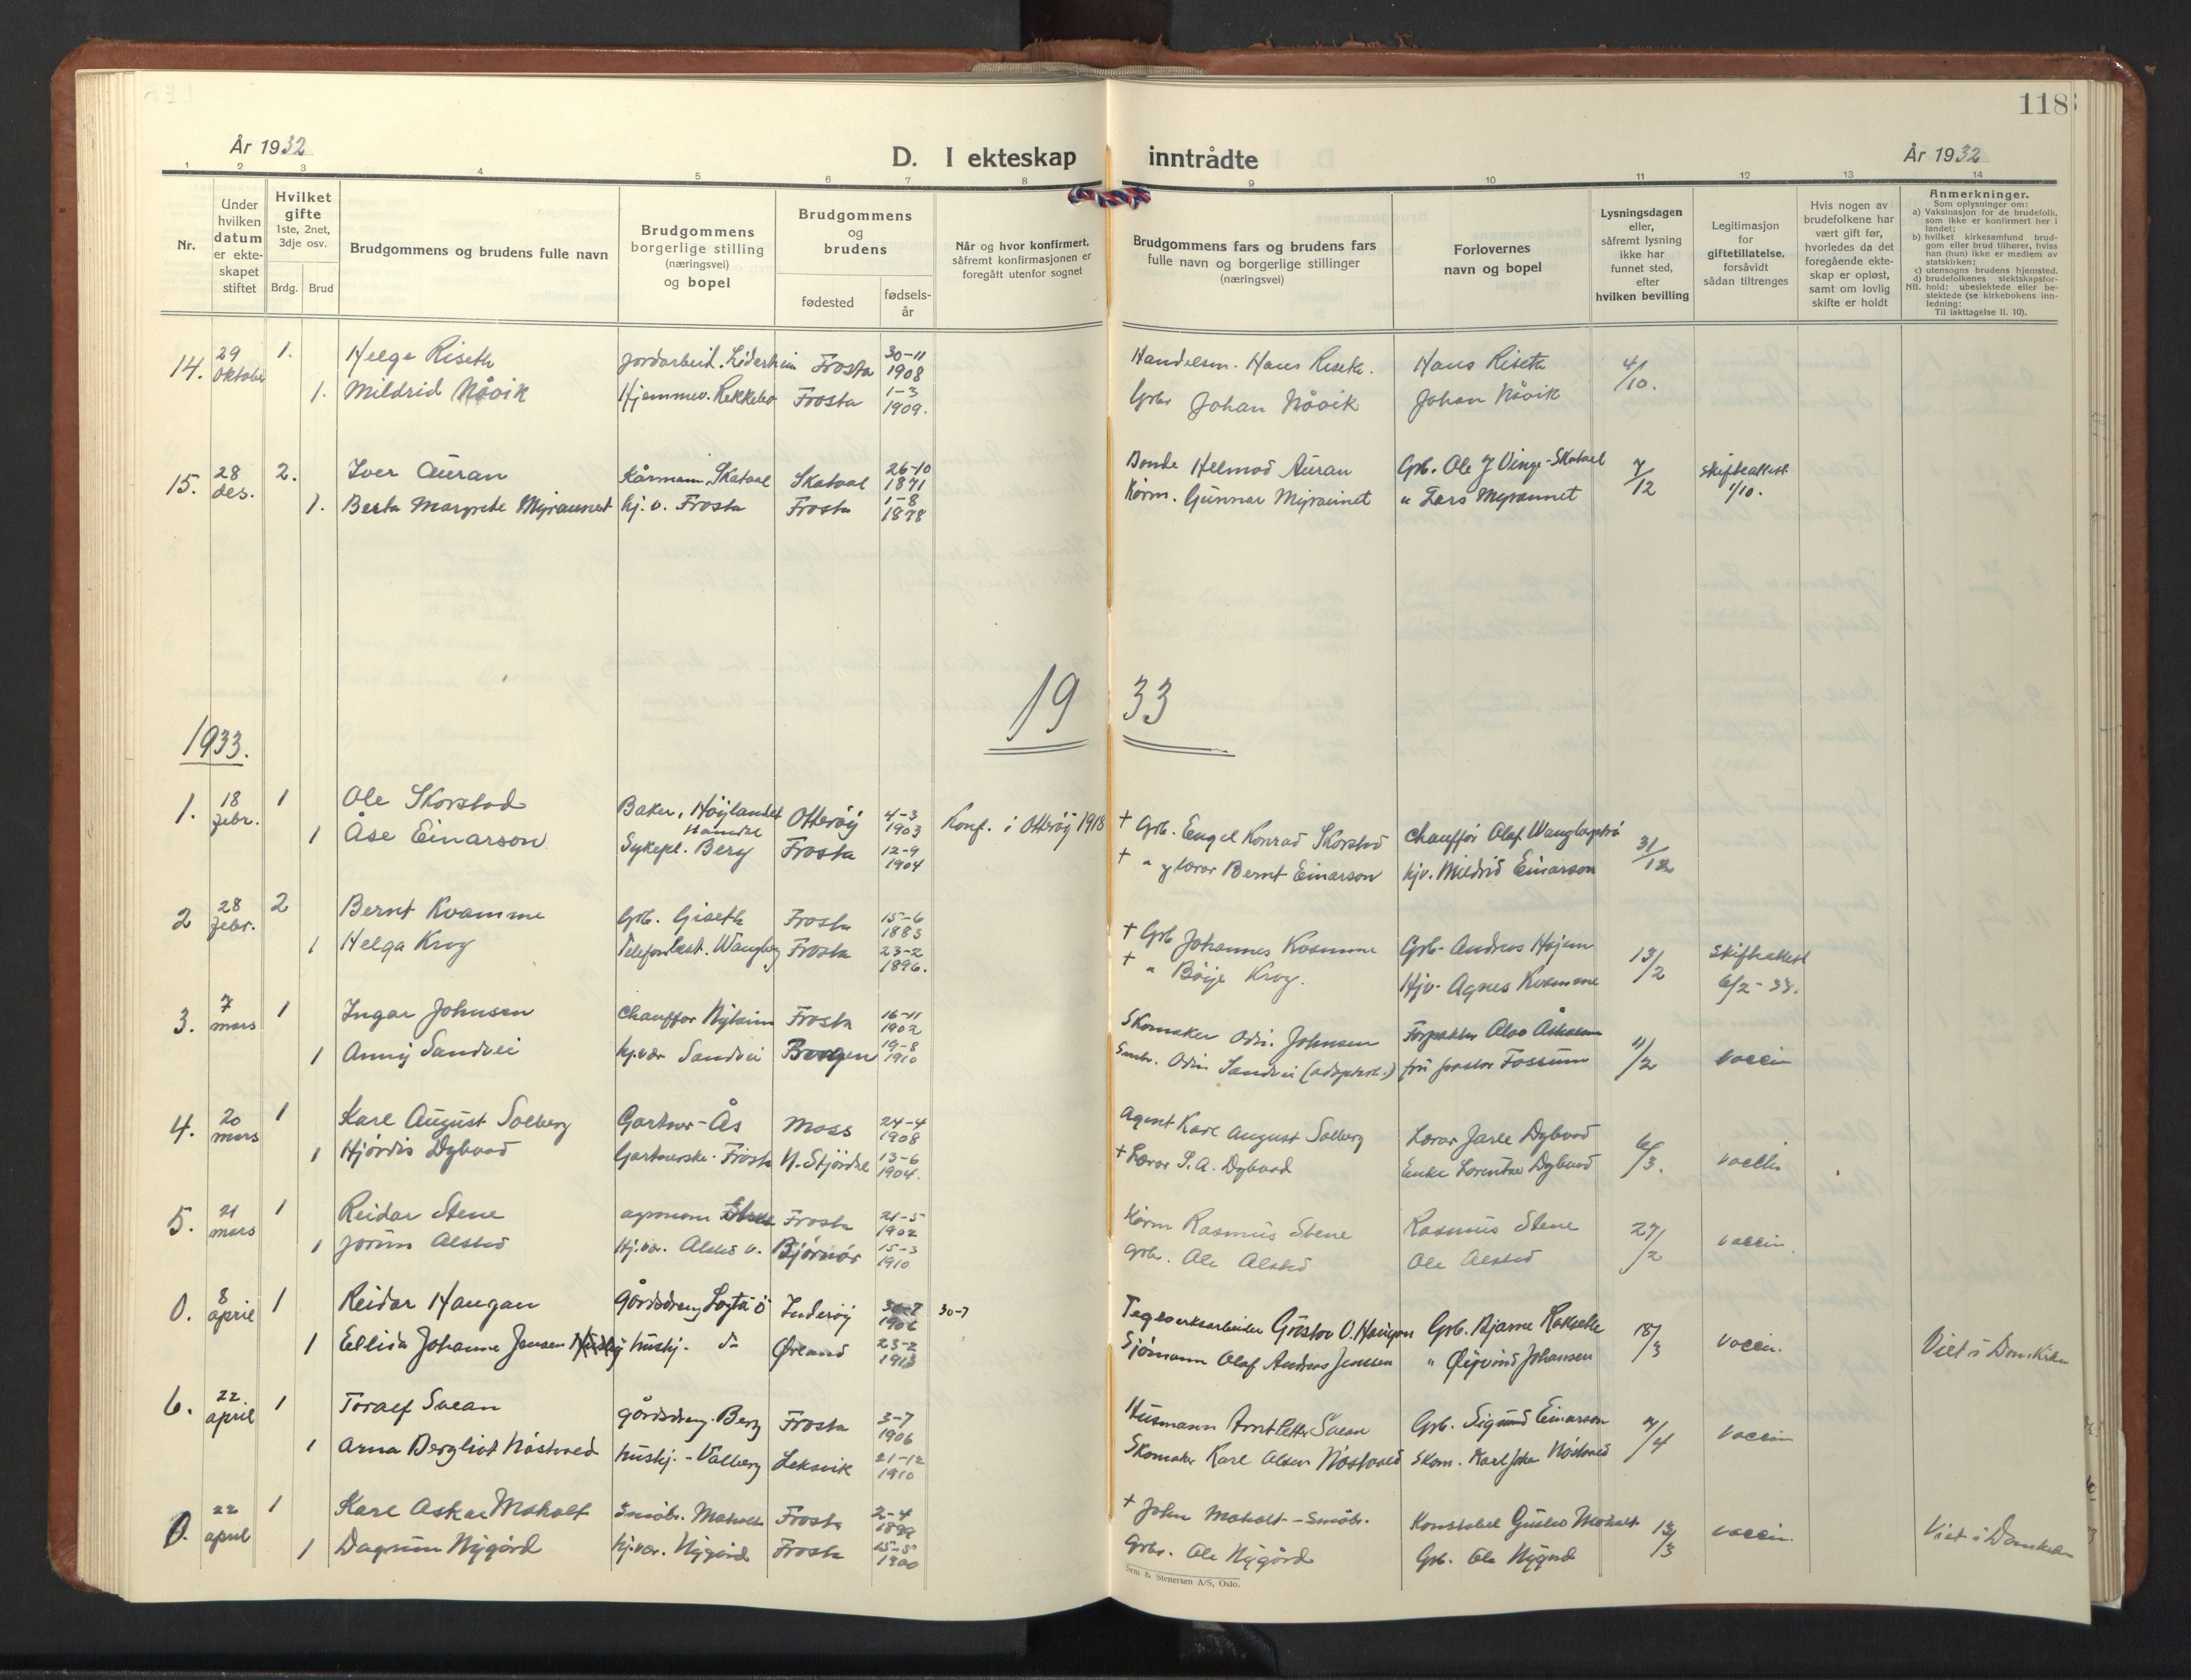 118
År 1932
D. I ekteskap inntrådte
År 1932
1 2 3 4 5 6 7 8 9 10 11 12 13 14
Nr.
Under hvilken datum er ekteskapet stiftet
Hvilket gifte 1ste, 2net, 3dje osv.
Brdg. Brud
Brudgommens og brudens fulle navn
Brudgommens borgerlige stilling (næringsvei) og bopel
Brudgommens og brudens
fødested
fødselsår
Når og hvor konfirmert, såfremt konfirmasjonen er foregått utenfor sognet
Brudgommens fars og brudens fars fulle navn og borgerlige stillinger (næringsvei)
Forlovernes navn og bopel
Lysningsdagen eller, såfremt lysning ikke har funnet sted, efter hvilken bevilling
Legitimasjon for giftetillatelse, forsåvidt sådan tiltrenges
Hvis nogen av brudefolkene har vært gift før, hvorledes da det foregående ekteskap er opløst, samt om lovlig skifte er holdt
Anmerkninger.
Som oplysninger om:
a) Vaksinasjon for de brudefolk, som ikke er konfirmert her i landet;
b) hvilket kirkesamfund brudgom eller brud tilhører, hviss han (hun) ikke er medlem av statskirken;
c) utensogns brudens hjemsted.
d) brudefolkenes slektskapsforhold: ubeslektede eller beslektede (se kirkebokens innledning:
NB.
Til iakttagelse II. 10).
14. 29 oktober 1. Helge Riseth Jordarbeid. Frosta 30-11 1908 Handelsm. Hans Riseth. Hans Riseth 4/10.
1. Mildrid Nåvik Hjemmev. Rekkebo Frosta 1-3 1909. Grbr Johan Nåvik Johan Nåvik
15. 28 des. 2. Iver Auran Kårmann, Skatval Skatval 26-10 1871 Bonde Helmod Auran Grb. Ole J Vinge-Skatval 7/12 Skifteattest 1/10.
1. Berta Margrete Myraunet hj. v. Frosta Frosta 1-8 1878 Kårm. Gunnar Myraunet " Lars Myraunet
19 33
1933.
1. 18 febr. 1 Ole Skorstad Baker, Höylandet Otteröy 4-3 1903 Konf. i Otteröy 1918 + Grb. Engel Konrad Skorstad Chaufför Olaf 31/12
1 Åse Einarson Sykepl. Berg Frosta 12-9 1904 + " g lærer Bernt Einarson hjv. Mildrid Einarson
2 28 febr. 2 Bernt Kvamme Grb. Giseth Frosta 15-6 1883 + Grb Johannes Kvamme Grb. Andreas Hojem 13/2 Skifteattest 6/2-33.
1 Helga Krog Telefonbest. Wangberg Frosta 23-2 1896. + " Böje Krog. Hjv. Agnes Kvamme
3. 7 mars 1 Ingar Johnsen Chauffør Nyheim Frosta 16-11 1902 Skomaker Odin Johnsen 11/2 vaccin
1 Anny Sandvei hj.vær Sandvei Bergen 19-8 1910 Småbr. Odin Sandvei (adoptert.) frü pastor Fossum
4. 20 mars 1 Karl August Solberg Gartner-Ås Moss 24-4 1908 Agent Karl August Solberg Lærer Jarle Dybvad 6/3. vaccin
1 Hjördis Dybvad Gartnerske. Frosta N. Stjördal 13-6 1904. + Lærer P. A. Dybvad Enke Lorentze Dybvad
5. 21 mars 1 Reidar Stene agronom Stene Frosta 21-5 1902 Kårm Rasmus Stene Rasmus Stene 27/2 vaccin.
1 Jorun Alstad Hj.vær. Alstad v. Björnör 15-3 1910 Grb. Ole Alstad Ole Alstad
0. 8 april 1 Reidar Haugan Gårdsdreng Logtu ö Inderöy 30-7 1906 30-7 Teglverksarbeider Gustav O. Haugan Grb. Bjarne 18/3 vaccin. Viet i Domkirken
1 Ellida Johanne Jensen hushj. do Ørland 23-2 1913 Sjömann Olaf Andreas Jenssen " Öyvind Johansen
6. 22. april 1 Toralf Svean gårdsdreng. Berg Frosta 3-7 1906 Husmann Arnt Petter Svean Grb. Sigurd Einarson 7/4 vaccin
1 Arna Bergliot Nöstvold hushj. - Valberg Leksvik 21-12 1910 Skomaker Karl Olsen Nöstvold Skom. Karl Johan Nöstvold
0. 22 april 1 Karl Oskar Moholt Småbr. Moholt Frosta 2-4 1899 + John Moholt - Småbr. Konstabel Gustav Moholt 13/3 vaccin. Viet i Domkirken
1 Dagrun Nygård hj.vær. Nygård Frosta 15-5 1900 Grbr. Ole Nygård Grb. Ole Nygård
Sem & Stenersen A/S, Oslo.